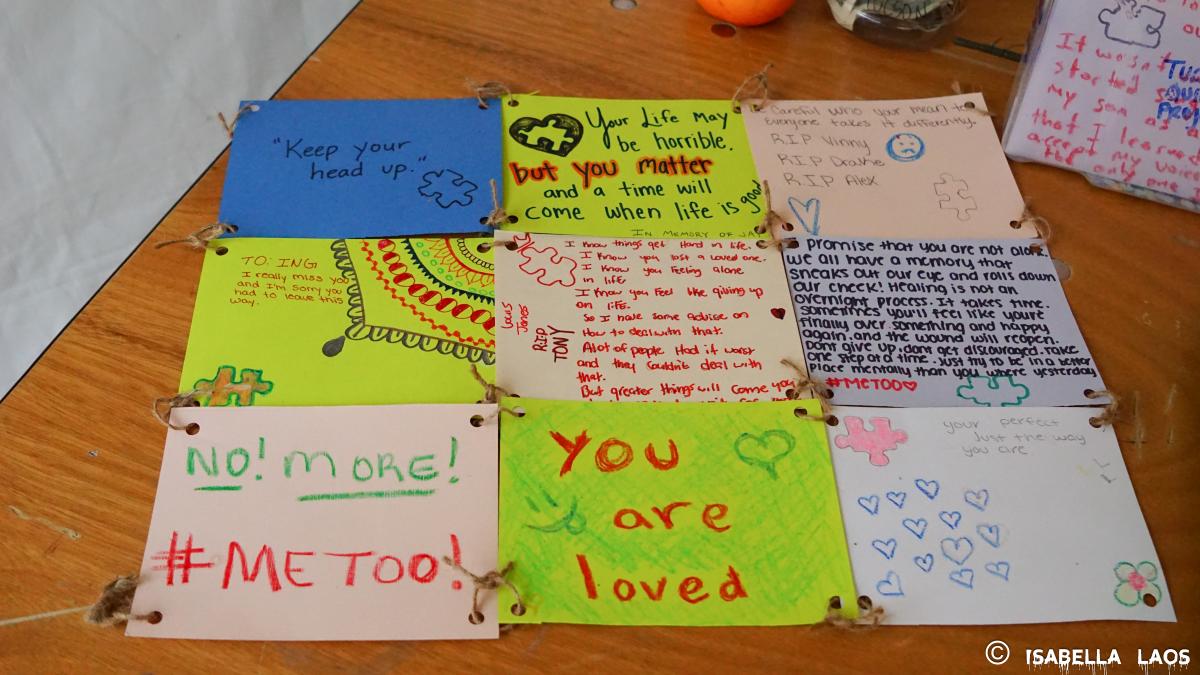 "Keep your
head up."
Your Life May
be horrible.
but you matter
and a time will
come when life is good
IN MEMORY OF JAY
Careful who your mean to
Everyone takes it differently.
R.I.P Vinny
R.I.P Drake
R.I.P Alex
TO: ING
I really miss you
and I'm sorry you
had to leave this
way.
I know things get Hard in life.
I know you lost a loved one.
I know you feeling alone
in life
I know you Feel like giving up
on life.
So I have some advise on
How to deal with that.
Alot of people Had it worst
and they couldn't deal with
that.
But greater things will come you
Louis
Jones
RIP
TONY
promise that you are not alone.
we all have a memory that
sneaks out our eye and rolls down
our cheek! Healing is not an
overnight process. It takes time.
sometimes you'll feel like you're
finally over something and happy
again. and the wound will reopen.
Dont give up, dont get discouraged. Take
one step at a time. Just try to be in a better
place mentally than you where yesterday
#METOO
NO! MORE!
#METOO!
You
are
loved
your perfect
Just the way
you are
It wasn't
started
my son
that I learned
accept my voice
the only one
© ISABELLA LAOS